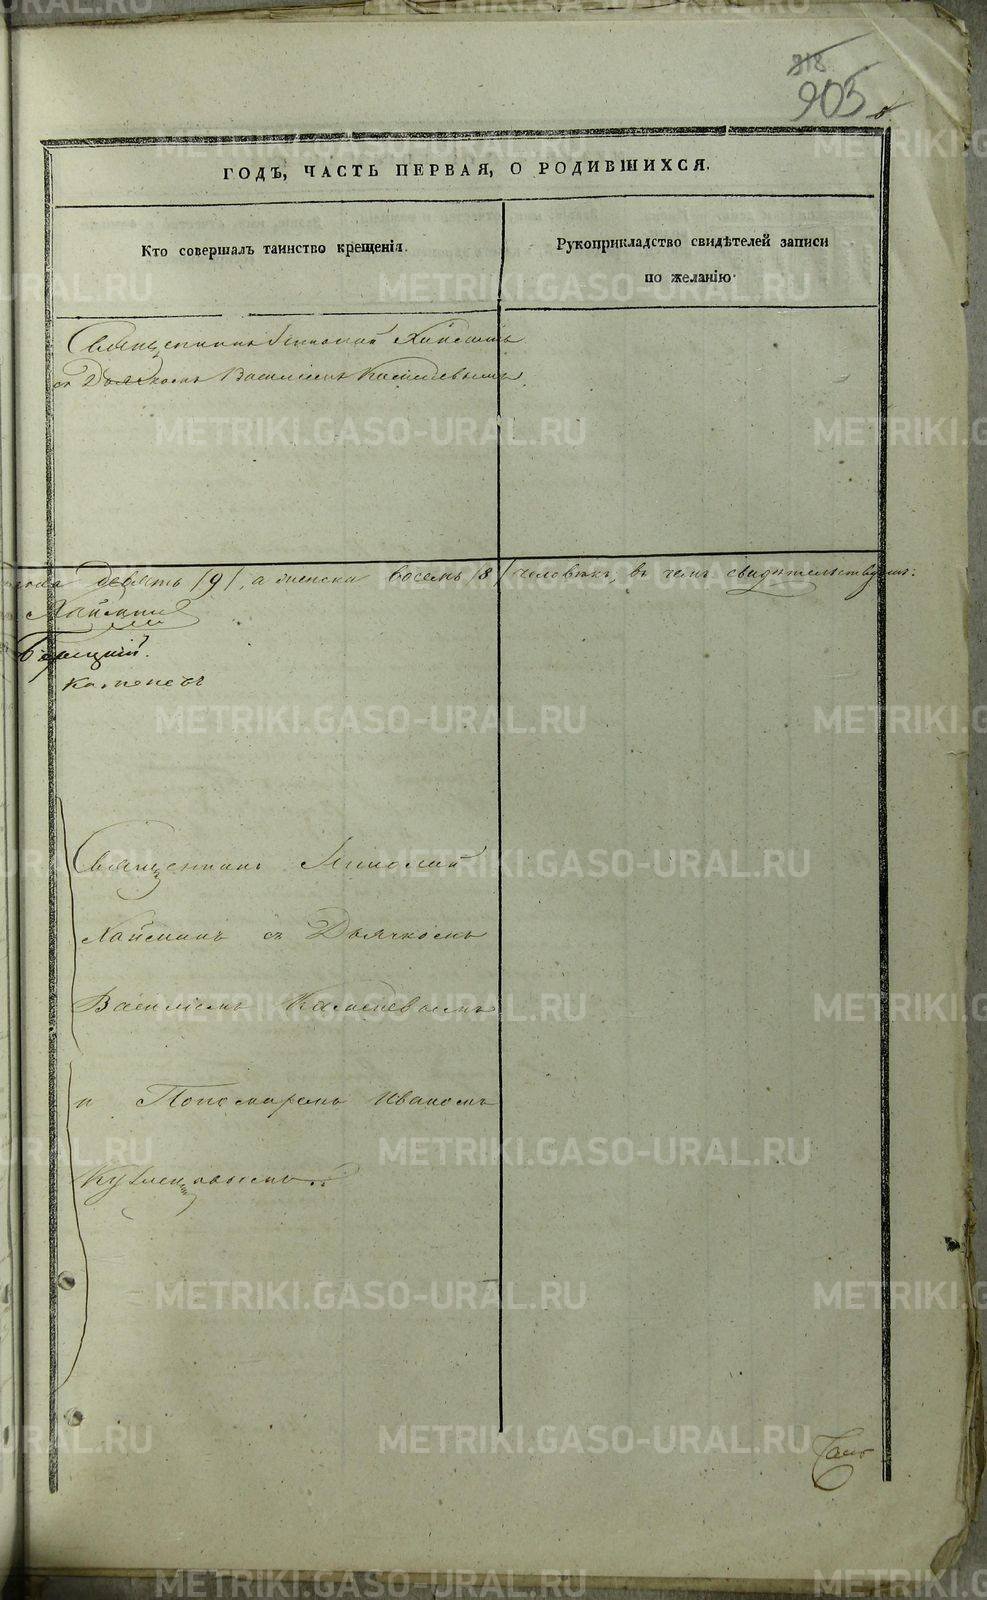 818
905
ГОДЪ, ЧАСТЬ ПЕРВАЯ, О РОДИВШИХСЯ.
Кто совершалъ таинство крещенія.
Рукоприкладство свидѣтелей записи
по желанію.
Священникъ Николай
съ Дьячкомъ Василіемъ
девять /9/, а женска восемь /8/ человѣкъ, въ чемъ свидѣтельствуемъ:
Священникъ Николай
съ Дьячкомъ
Василіемъ
и Пономаремъ Иваномъ
METRIKI.GASO-URAL.RU